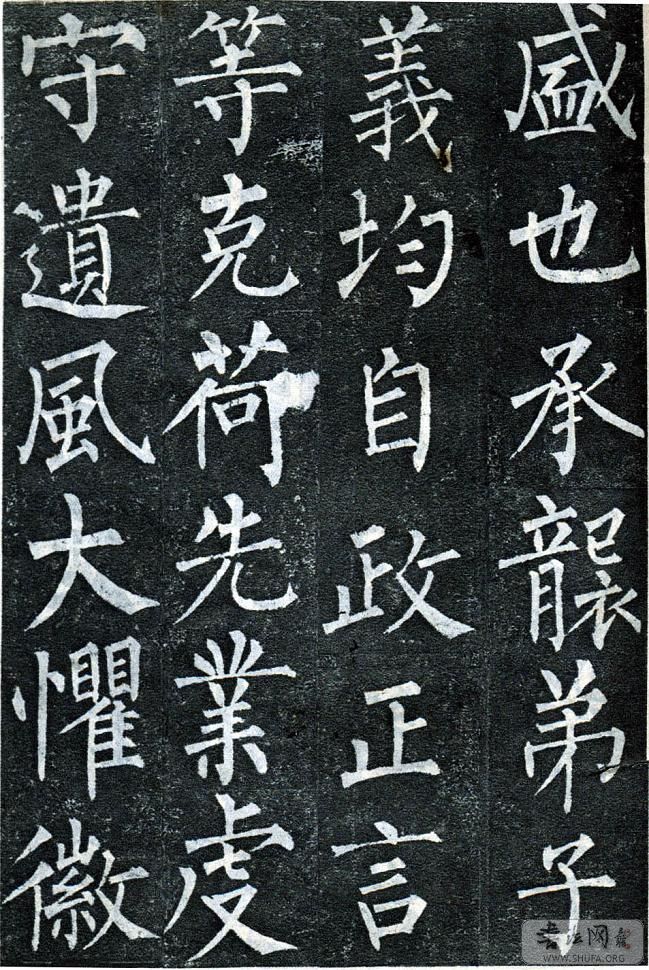 盛也承襲弟子
義均自政正言
等克荷先業虔
守遺風大懼徽
書法网
WWW.SHUFA.ORG